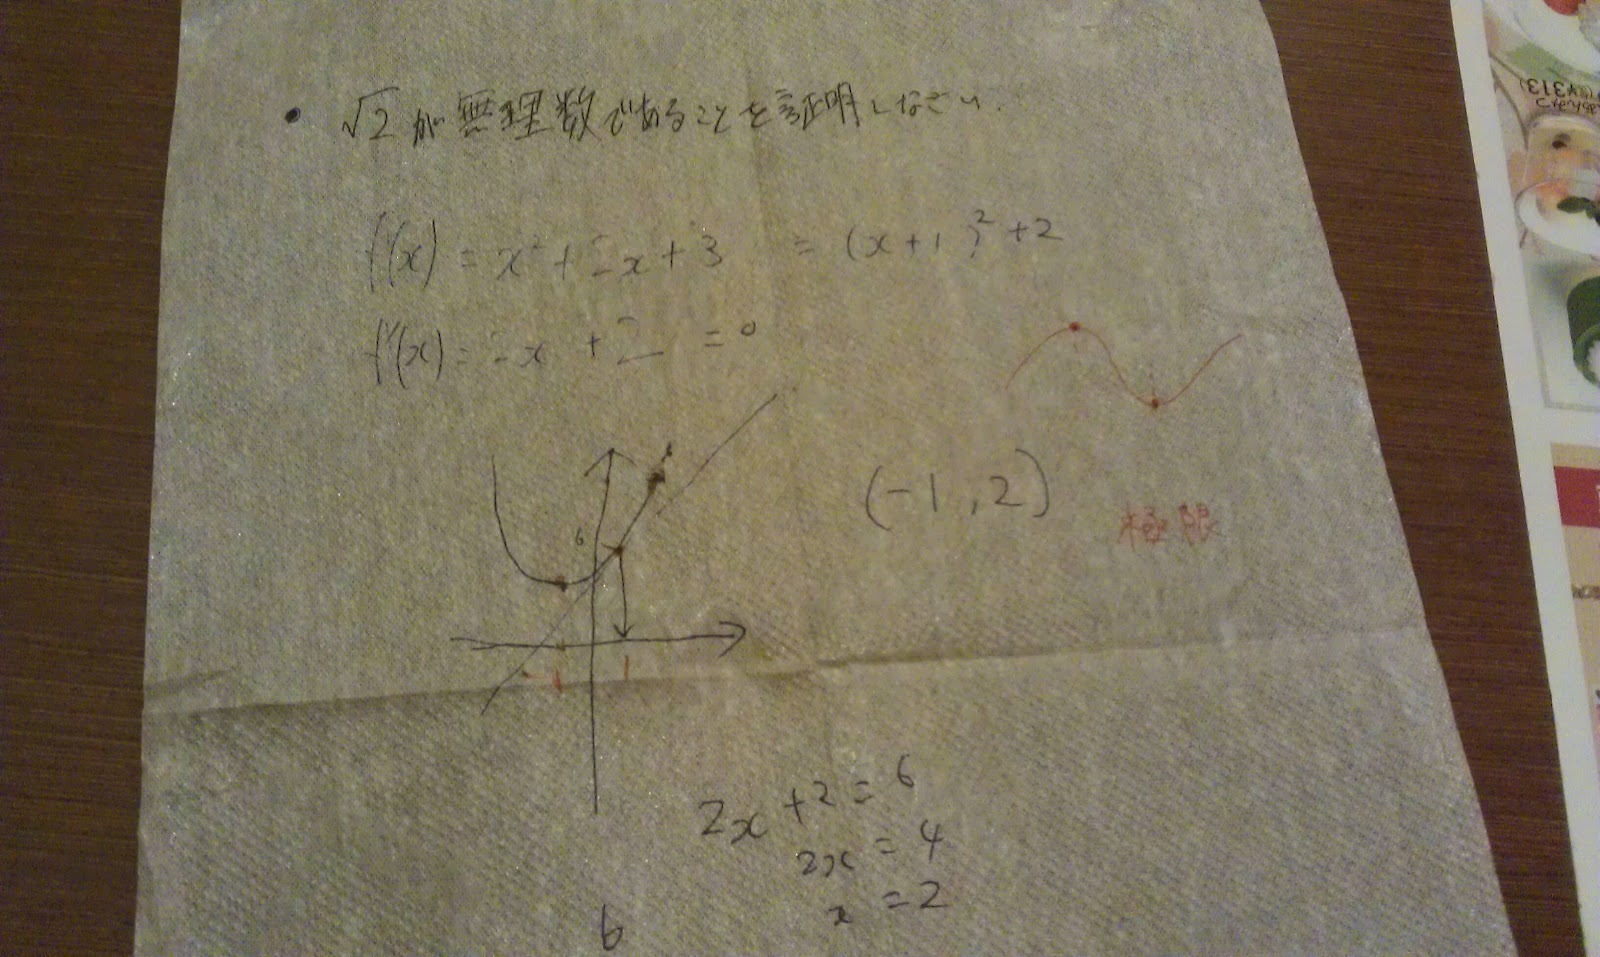 • √2が無理数であることを証明しなさい.
f(x) = x² + 2x + 3 = (x+1)² + 2
f'(x) = 2x + 2 = 0
6
(-1, 2)
極限
1 1
2x + 2 = 6
2x = 4
x = 2
b